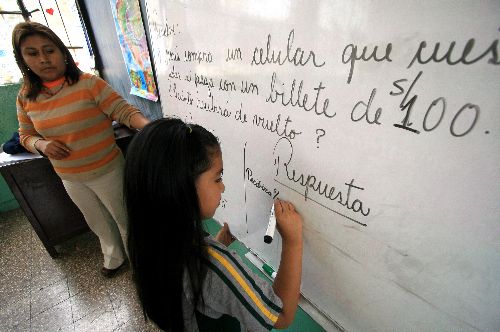 compra un celular que cues
si paga con un billete de S/. 100.
¿Cuánto recibirá de vuelto ?
Respuesta
Recibirá S/